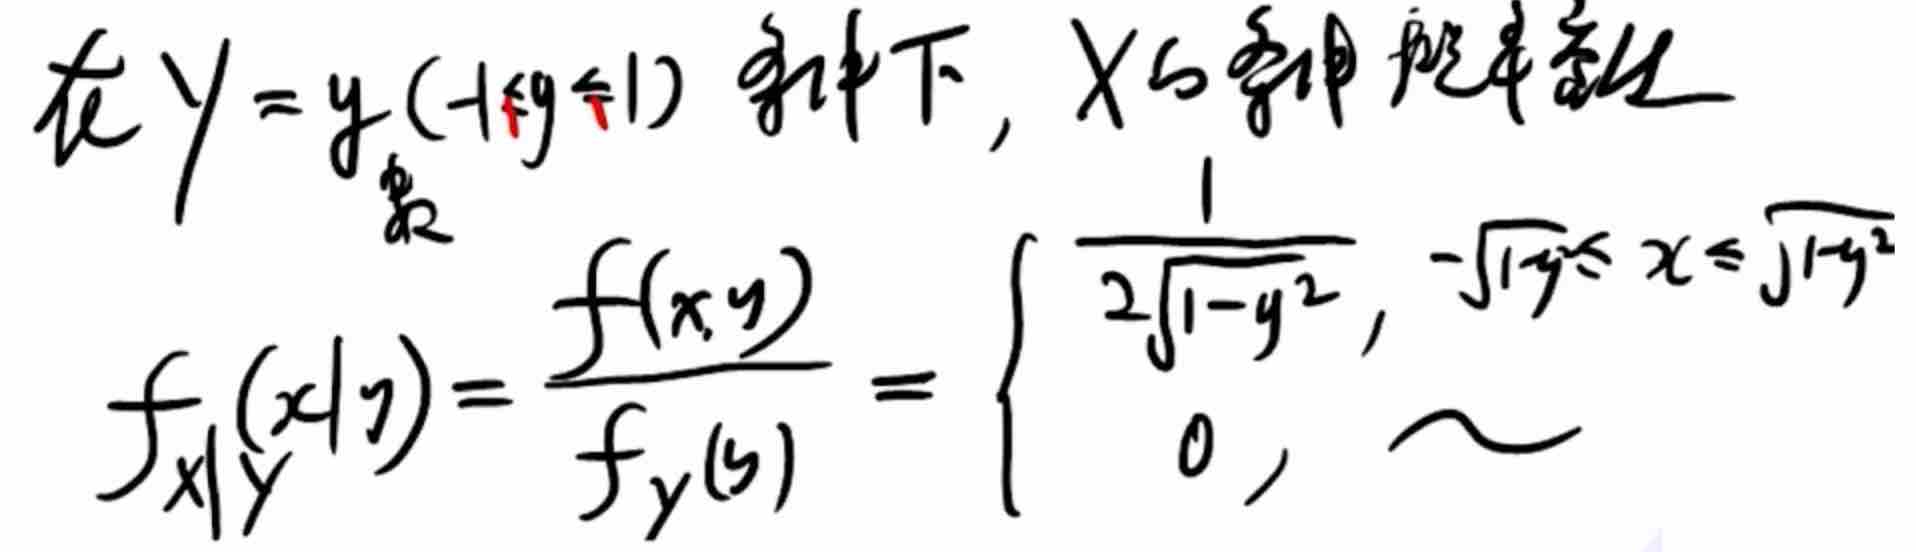 在 Y = y (-1 ≤ y ≤ 1) 条件下, X的条件概率密度
f_{X|Y}(x|y) = \frac{f(x,y)}{f_Y(y)} = \begin{cases} \frac{1}{2\sqrt{1-y^2}}, & -\sqrt{1-y^2} ≤ x ≤ \sqrt{1-y^2} \\ 0, & \sim \end{cases}